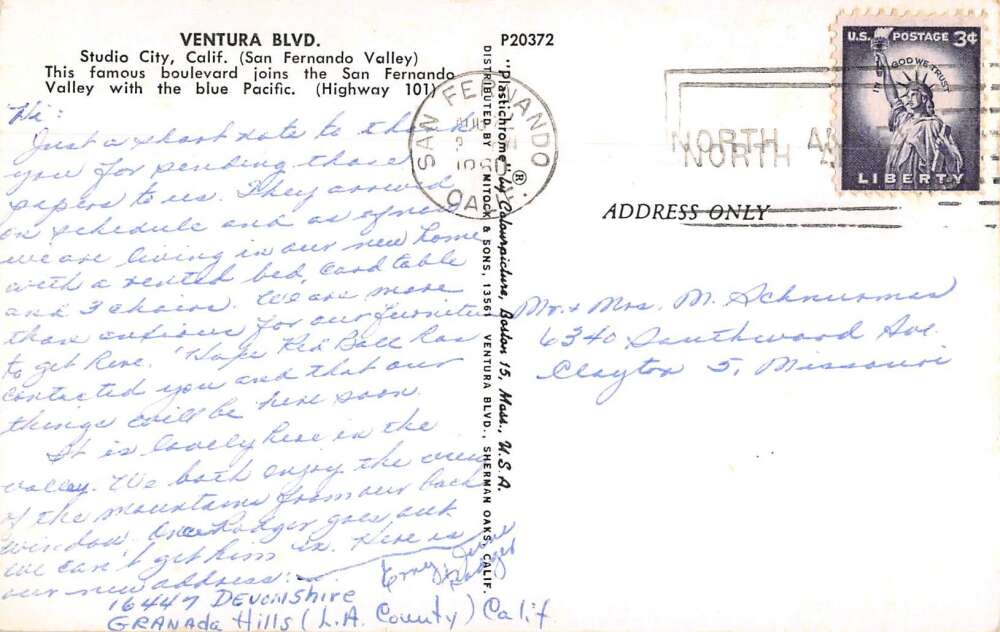 VENTURA BLVD.
Studio City, Calif. (San Fernando Valley)
This famous boulevard joins the San Fernando
Valley with the blue Pacific. (Highway 101)
Hi:
Just a short note to thank
you for sending those
papers to us. They arrived
on schedule and as of now
we are living in our new home
with a rented bed, card table
and 3 chairs. We are more
than anxious for our furniture
to get here. Hope Red Ball has
contacted you and that our
things will be here soon.
It is lovely here in the
valley. We both enjoy the view
of the mountains from our back
window. Once Rodger goes out
we can't get him in. Here is
our new address:
16447 Devonshire
Granada Hills (L.A. County) Calif
P20372
"Plastichrome"® by Colourpicture, Boston 15, Mass., U.S.A.
DISTRIBUTED BY MITOCK & SONS, 13561 VENTURA BLVD., SHERMAN OAKS, CALIF.
SAN FERNANDO
CALIF
NORTH
NORTH
U.S. POSTAGE 3¢
IN GOD WE TRUST
LIBERTY
ADDRESS ONLY
Mr. & Mrs. M. Schnurman
6340 Southwood Ave.
Clayton 5, Missouri